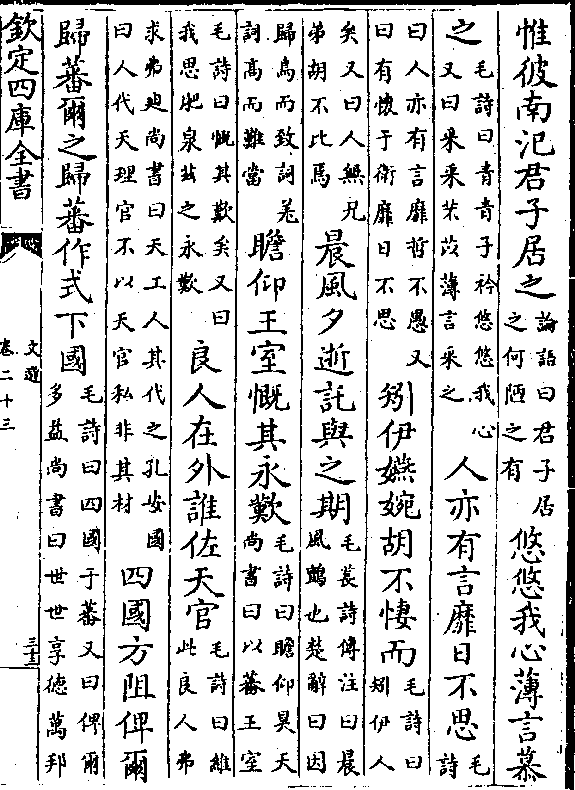 惟彼南汜君子居之論語曰君子居之何陋之有悠悠我心薄言慕
之毛詩曰青青子衿悠悠我心又曰采采芣苢薄言采之人亦有言靡日不思毛詩
曰人亦有言靡哲不愚又曰有懷于衛靡日不思矧伊嬿婉胡不悽而毛詩曰矧伊人
矣又曰人無兄弟胡不比焉晨風夕逝託與之期毛萇詩傳注曰晨風鸇也楚辭曰因
歸鳥而致詞羌詞高而難當瞻仰王室慨其永歎毛詩曰瞻仰昊天尚書曰以蕃王室
毛詩曰慨其歎矣又曰我思肥泉玆之永歎良人在外誰佐天官毛詩曰維此良人弗
求弗迪尚書曰天工人其代之孔安國曰人代天理官不以天官私非其材四國方阻俾爾
歸蕃爾之歸蕃作式下國毛詩曰四國于蕃又曰俾爾多益尚書曰世世享德萬邦
欽定四庫全書
文選
卷二十三
三十三